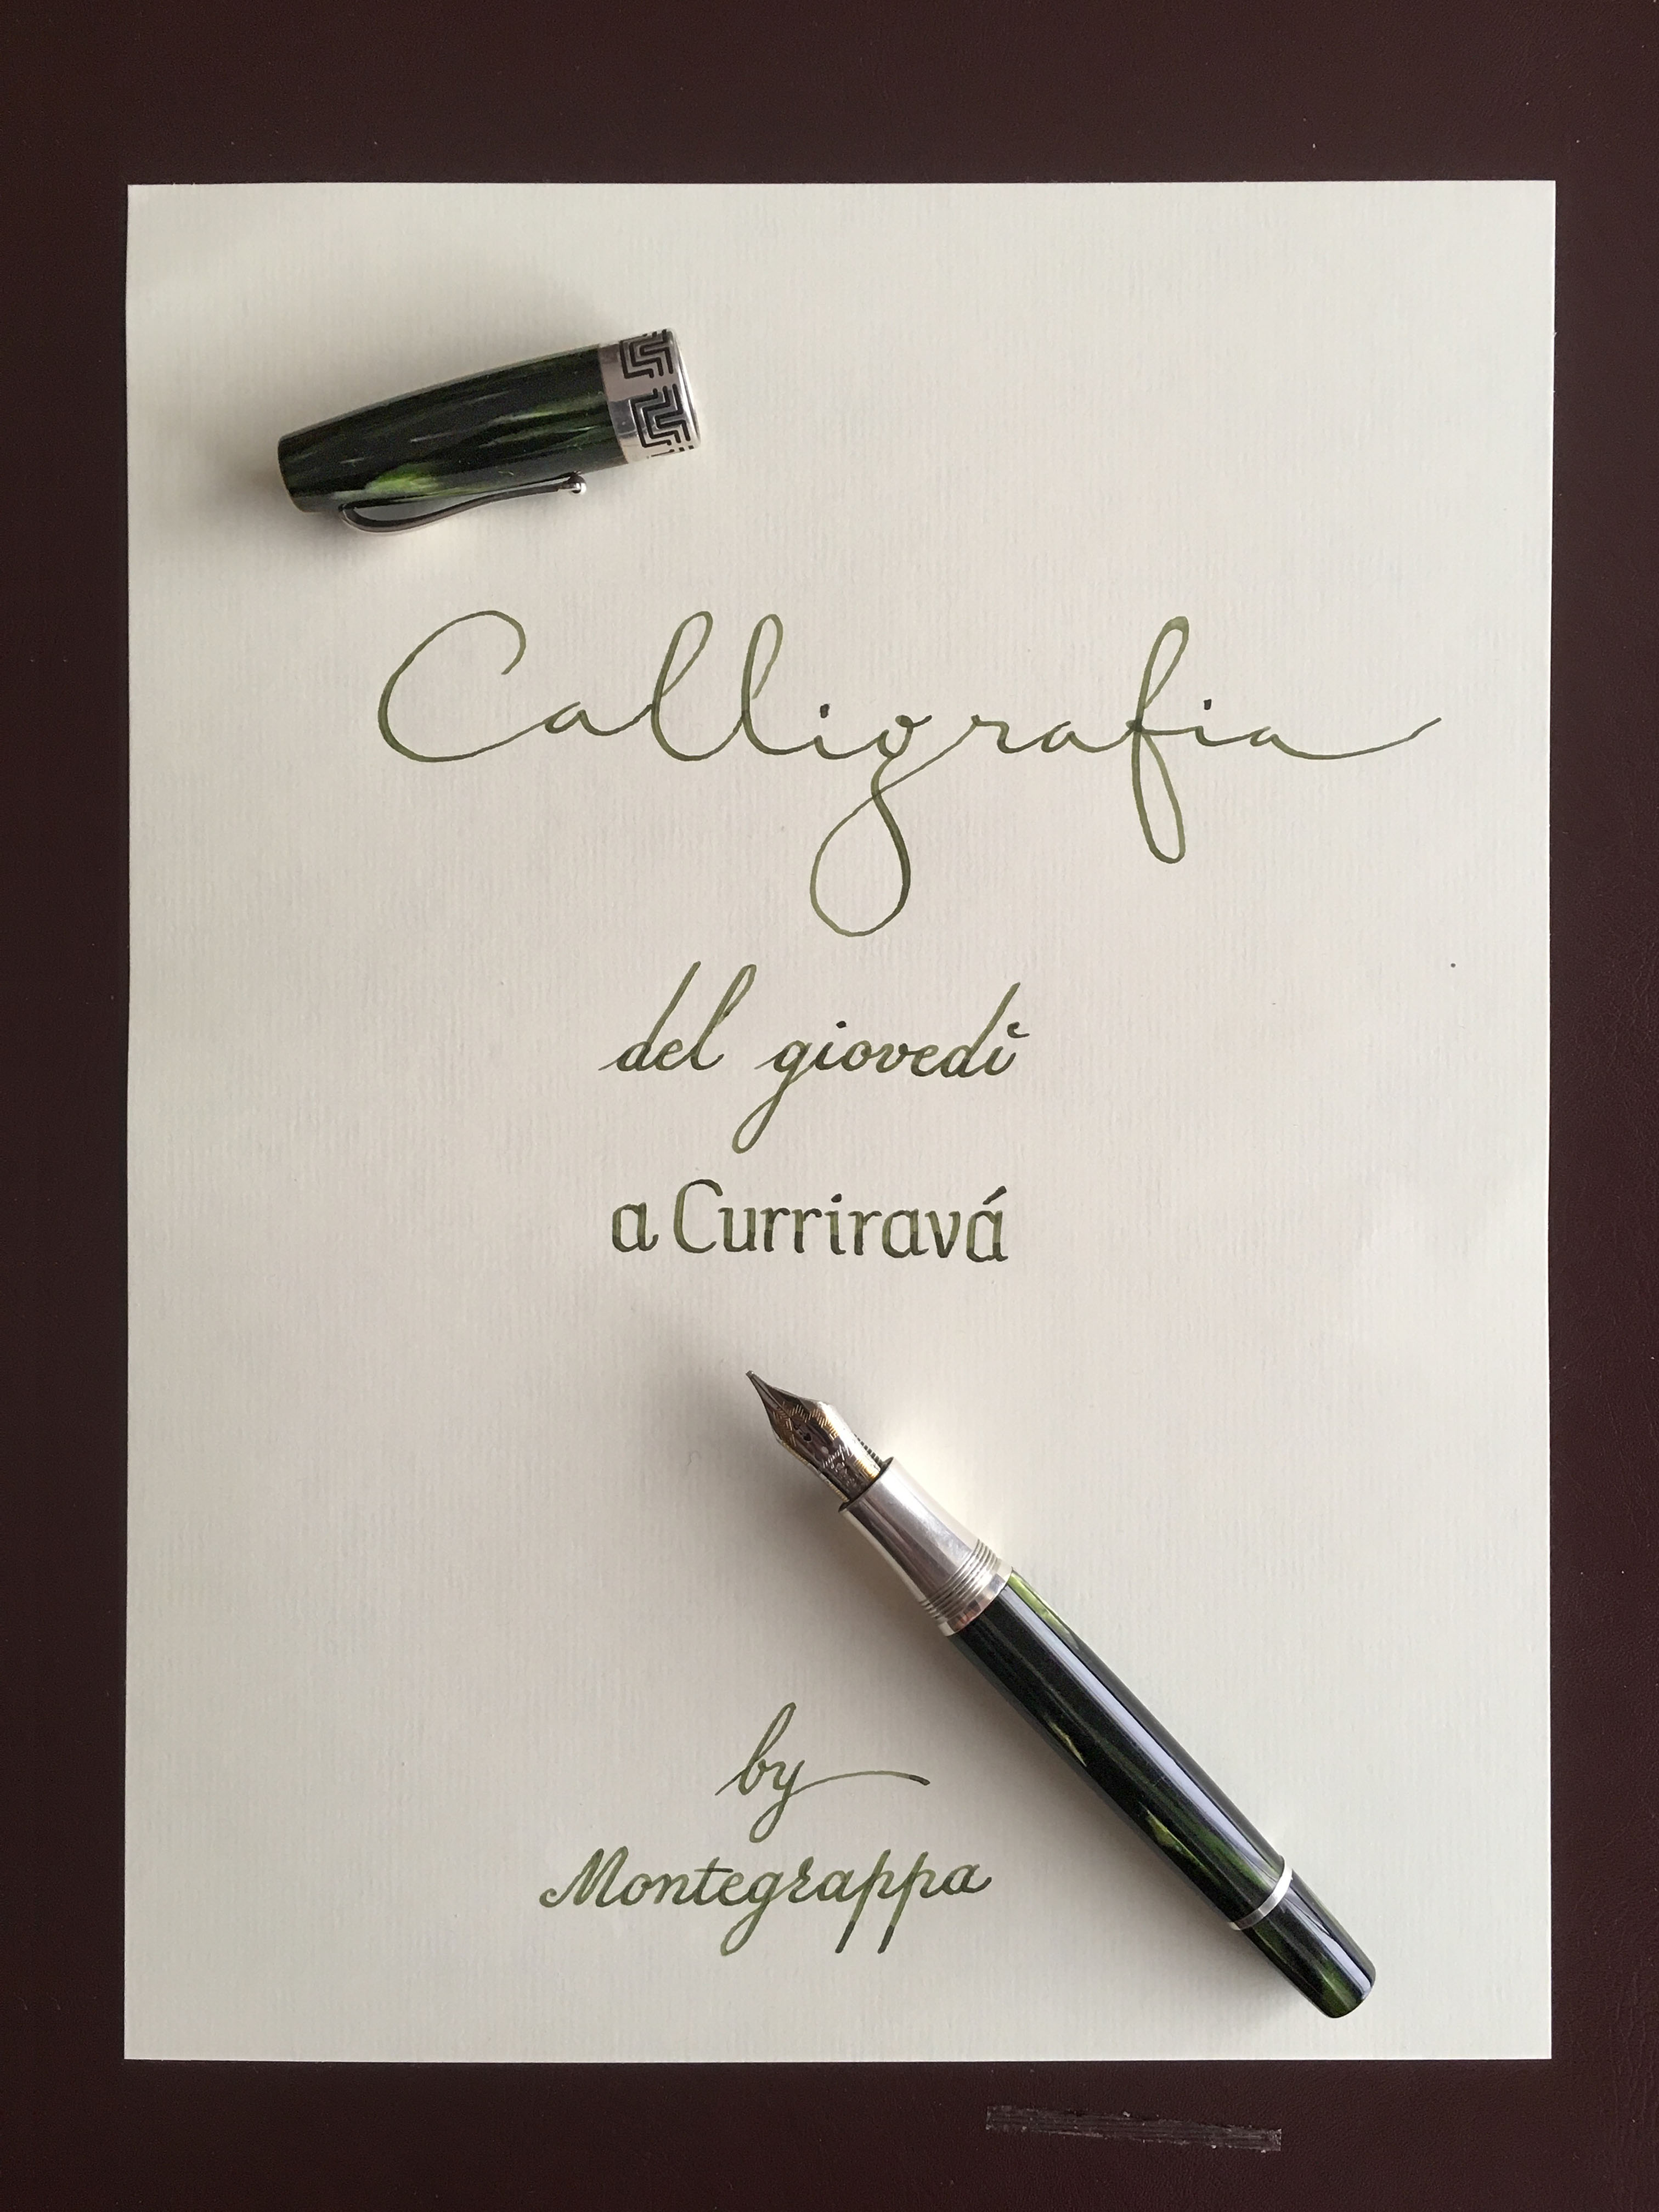 Calligrafia
del giovedì
a Curriravá
by
Montegrappa